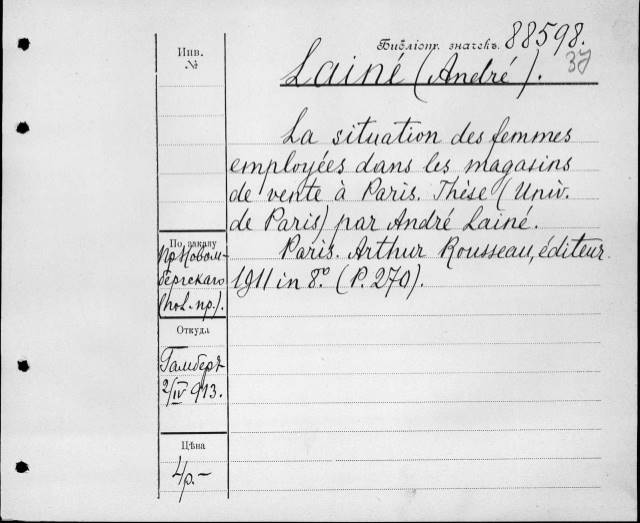 Инв.
№
Библіотг. значекъ. 88598.
37
Lainé (André).
La situation des femmes
employées dans les magasins
de vente à Paris. Thèse (Univ.
de Paris) par André Lainé.
Paris. Arthur Rousseau, éditeur.
1911 in 8º. (P. 270).
По заказу
пр. Новом-
бергскаго
(пол. пр.).
Откуда
Гамберъ
2/IV 913.
Цѣна
4р.-